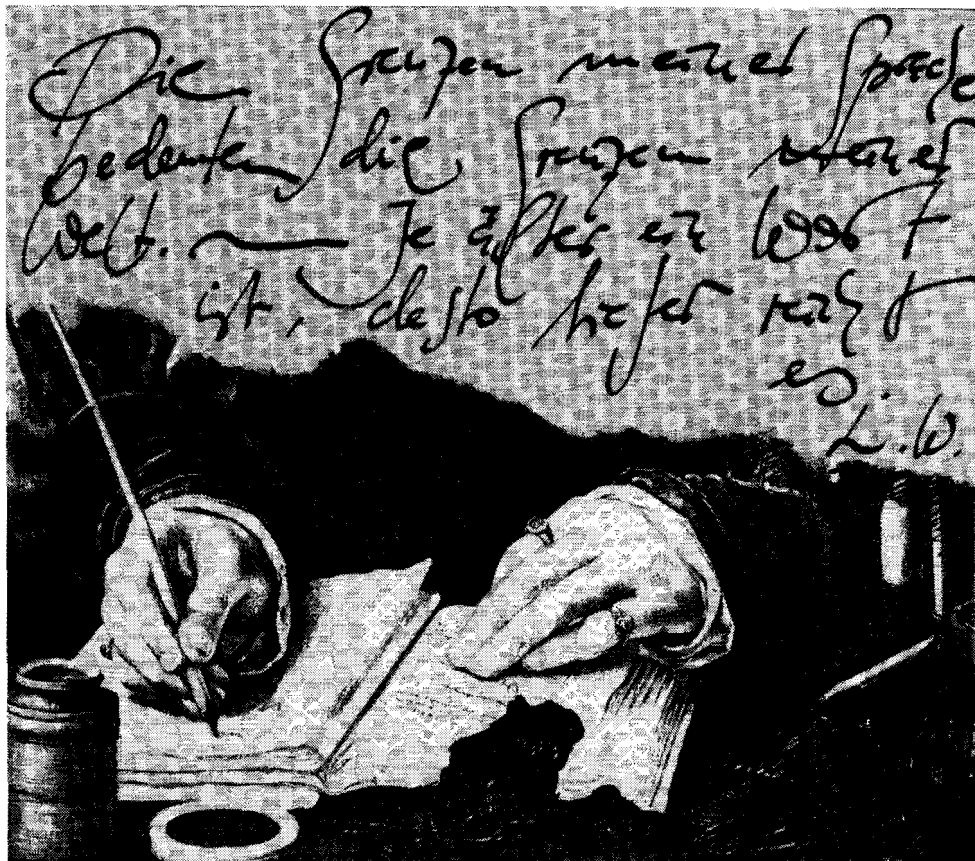 Die Grenzen meiner Sprache
bedeuten die Grenzen meiner
Welt. — Je älter ein Wort
ist, desto tiefer reicht
es
L.W.